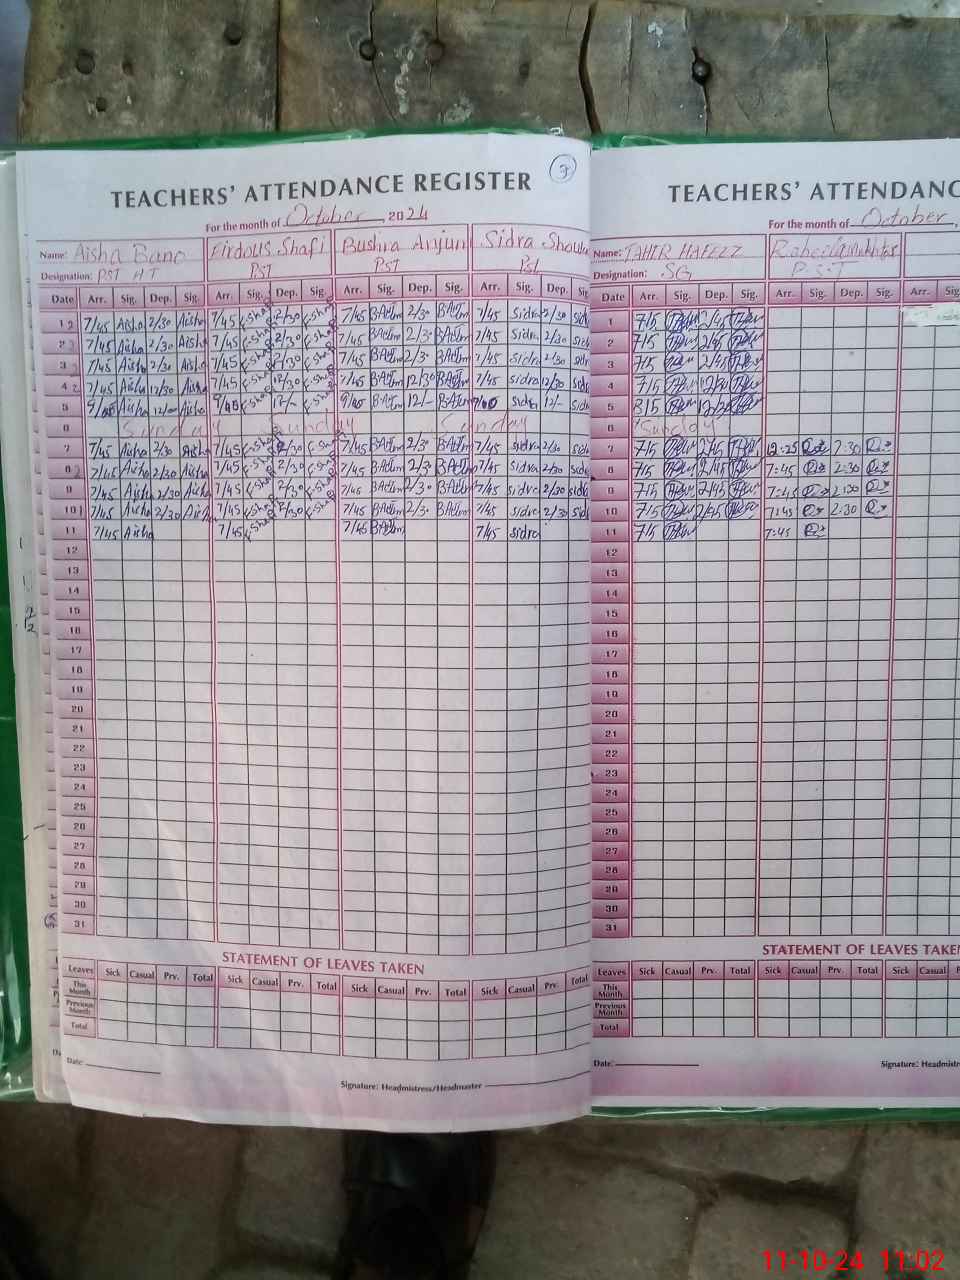 TEACHERS' ATTENDANCE REGISTER
For the month of October, 2024
Name: Aisha Bano Firdous Shafi Bushra Anjum Sidra
Designation: PST HT PST PST PST
Date Arr. Sig. Dep. Sig. Arr. Sig. Dep. Sig. Arr. Sig. Dep. Sig. Arr. Sig. Dep. Sig.
1 7/45 Aisha 2/30 Aisha 7/45 F.Shafi 2/30 F.Shafi 7/45 2/30 7/45 Sidra 2/30
2 7/45 Aisha 2/30 Aisha 7/45 F.Shafi 2/30 F.Shafi 7/45 2/30 7/45 Sidra 2/30
3 7/45 Aisha 2/30 Aisha 7/45 F.Shafi 2/30 F.Shafi 7/45 2/30 7/45 Sidra 2/30
4 7/45 Aisha 12/30 Aisha 7/45 F.Shafi 12/30 F.Shafi 7/45 12/30 7/45 Sidra 12/30
5 Aisha 12/- Aisha F.Shafi 12/- F.Shafi 12/- Sidra 12/-
6 Sunday Sunday Sunday
7 7/45 Aisha 2/30 Aisha 7/45 F.Shafi 2/30 F.Shafi 7/45 2/30 7/45 Sidra 2/30
8 7/45 Aisha 2/30 Aisha 7/45 F.Shafi 2/30 F.Shafi 7/45 2/30 7/45 Sidra 2/30
9 7/45 Aisha 2/30 Aisha 7/45 F.Shafi 2/30 F.Shafi 7/45 2/30 7/45 Sidra 2/30
10 7/45 Aisha 2/30 Aisha 7/45 F.Shafi 2/30 F.Shafi 7/45 2/30 7/45 Sidra 2/30
11 7/45 Aisha 7/45 F.Shafi 7/45 7/45 Sidra
12
13
14
15
16
17
18
19
20
21
22
23
24
25
26
27
28
29
30
31
STATEMENT OF LEAVES TAKEN
Leaves Sick Casual Prv. Total Sick Casual Prv. Total Sick Casual Prv. Total Sick Casual Prv. Total
This Month
Previous Month
Total
Date:
Signature: Headmistress/Headmaster
TEACHERS' ATTENDANC
For the month of October,
Name: TAHIR HAFEEZ
Designation: SG P.S.T
Date Arr. Sig. Dep. Sig. Arr. Sig. Dep. Sig. Arr. Sig.
1 7/5 2/45
2 7/5 2/45
3 7/5 2/45
4 7/5 12/30
5 8/5
6 Sunday
7 7/5 2/45 12:25 2:30
8 7/5 2/45 7:45 2:30
9 7/5 2/45 7:45 2:30
10 7/5 2/45 7:45 2:30
11 7/5 7:45
12
13
14
15
16
17
18
19
20
21
22
23
24
25
26
27
28
29
30
31
STATEMENT OF LEAVES TAKEN
Leaves Sick Casual Prv. Total Sick Casual Prv. Total Sick Casual
This Month
Previous Month
Total
Date:
Signature: Headmistre
11-10-24 11:02